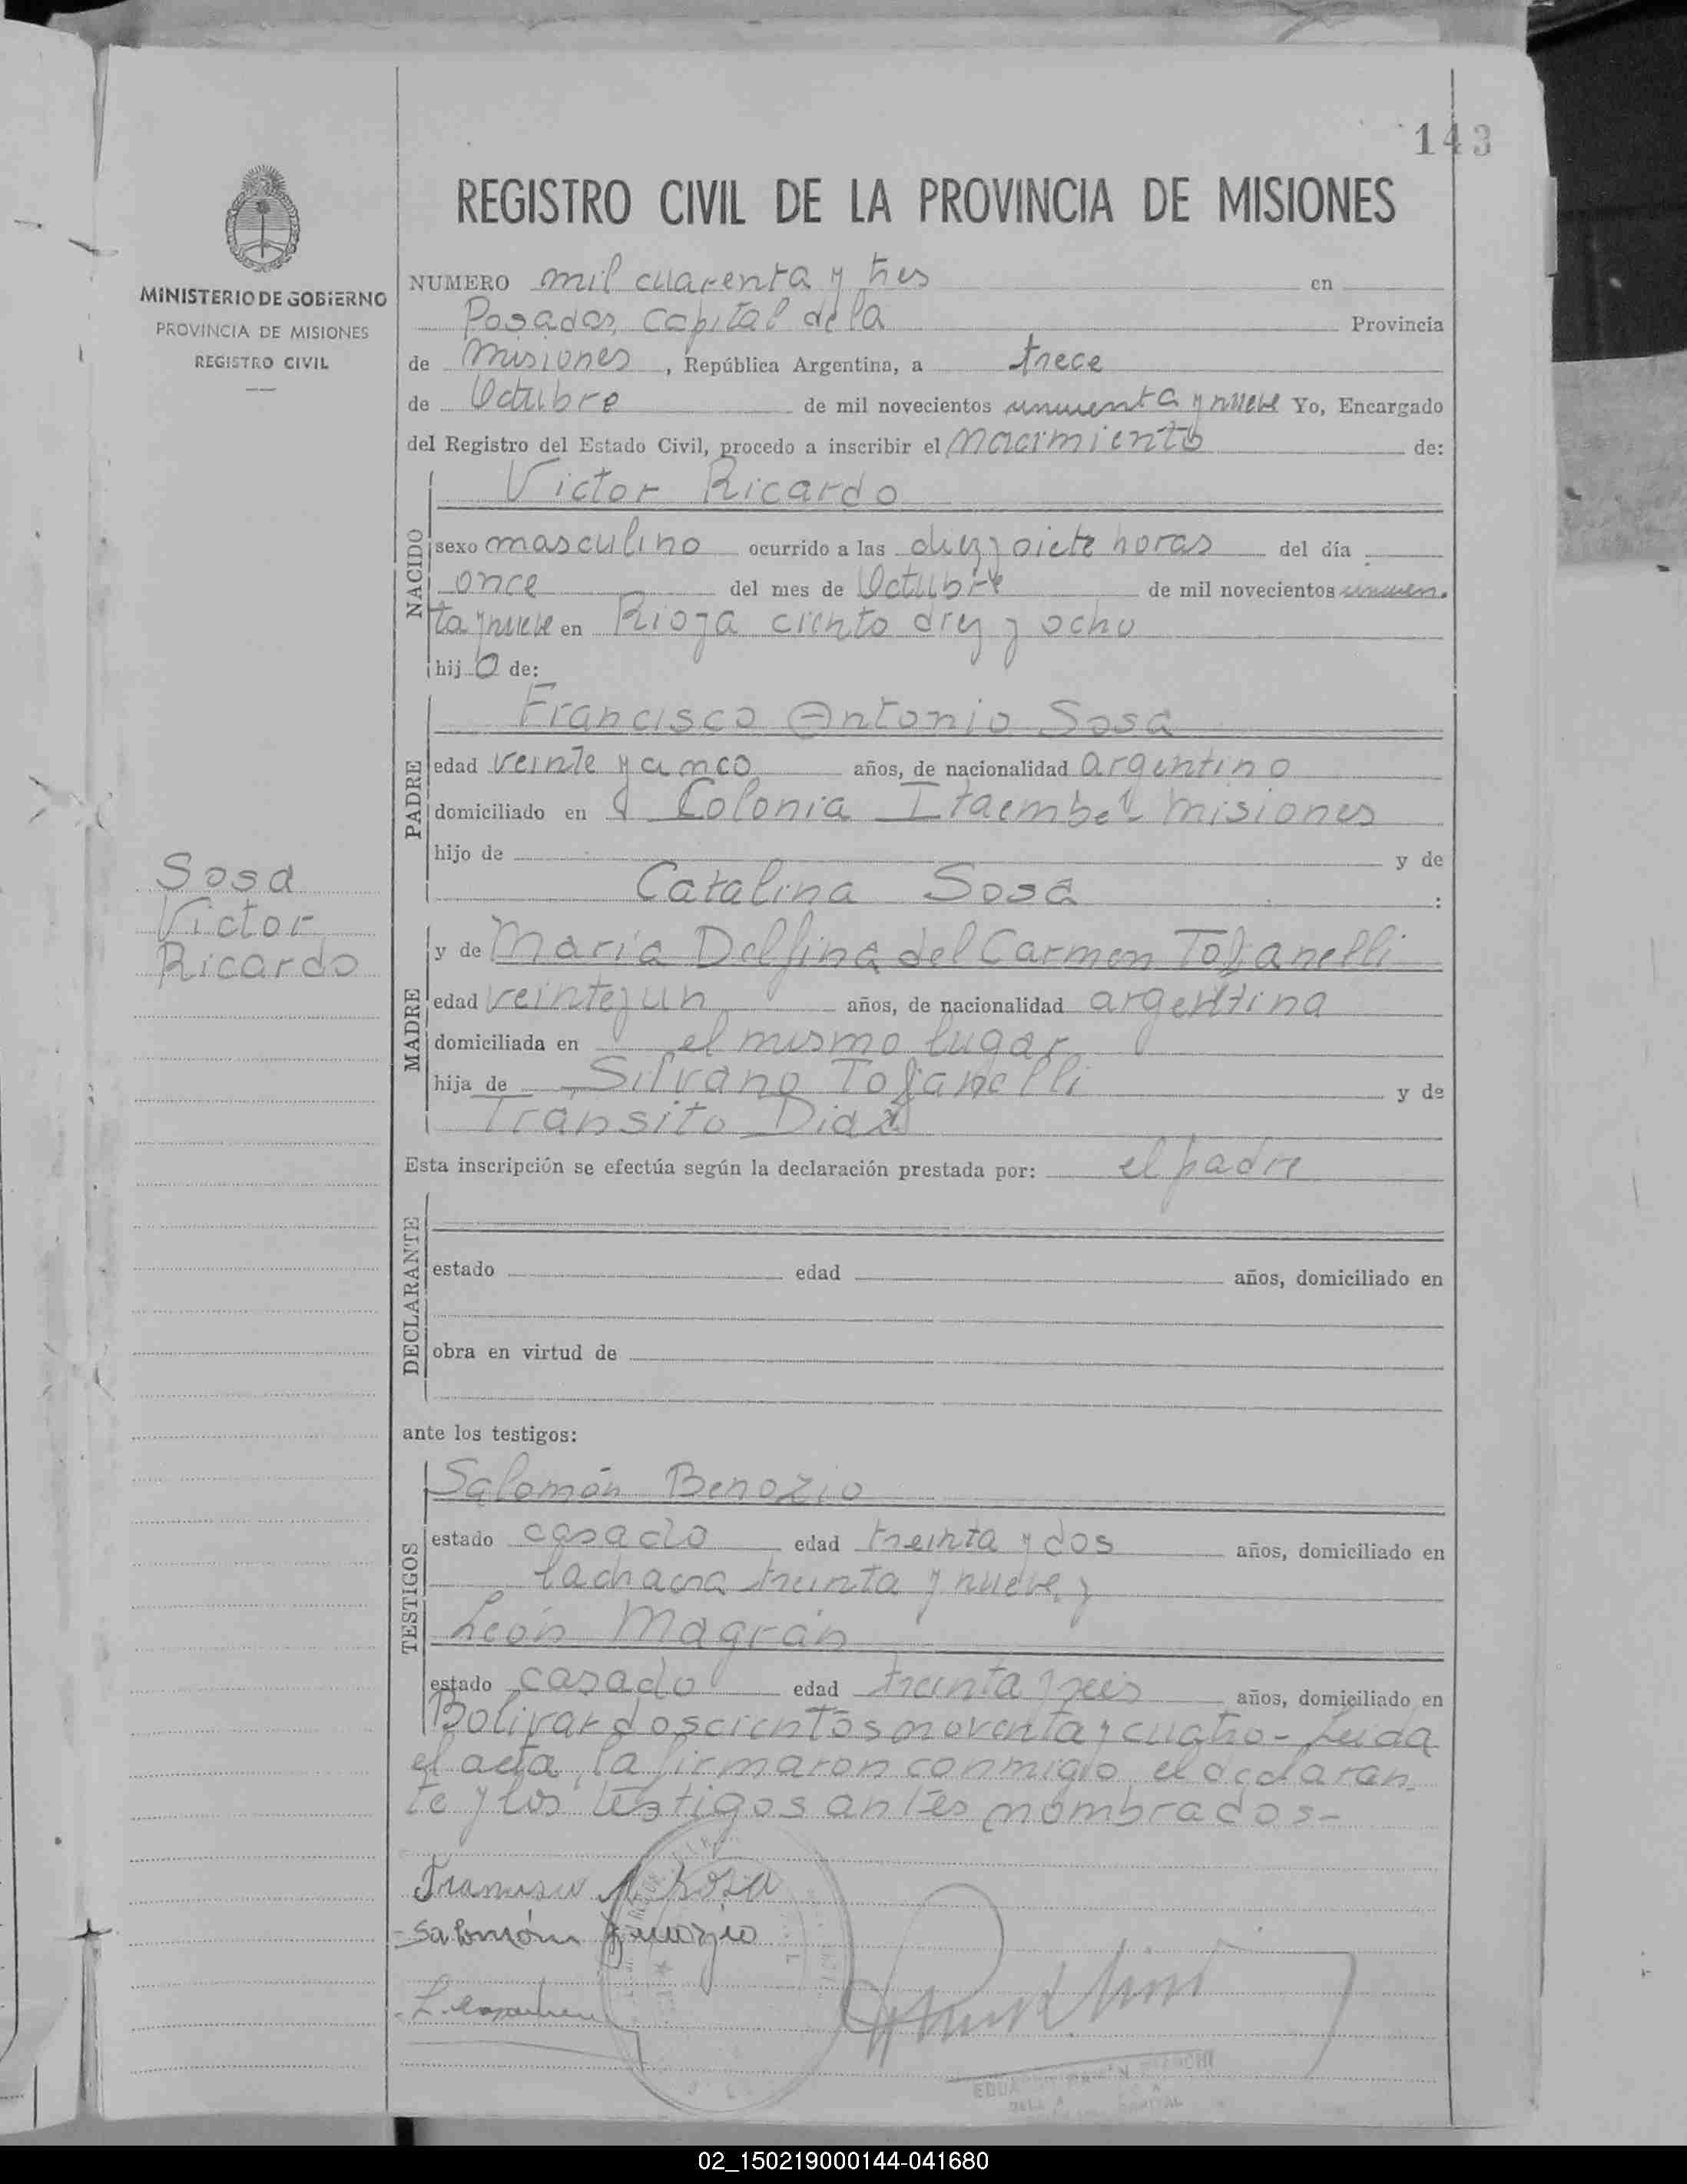 143
REGISTRO CIVIL DE LA PROVINCIA DE MISIONES
MINISTERIO DE GOBIERNO
PROVINCIA DE MISIONES
REGISTRO CIVIL
NUMERO mil cuarenta y tres en
Posadas, capital de la Provincia
de Misiones, República Argentina, a trece
de Octubre de mil novecientos cincuenta y nueve Yo, Encargado
del Registro del Estado Civil, procedo a inscribir el Nacimiento de:
Victor Ricardo
NACIDO
sexo masculino ocurrido a las diez y siete horas del día
once del mes de Octubre de mil novecientos cincuen.
ta y nueve en Rioja ciento diez y ocho
hijo de:
Francisco Antonio Sosa
PADRE
edad veinte y cinco años, de nacionalidad argentino
domiciliado en Colonia Itaembé Misiones
hijo de y de
Catalina Sosa :
Sosa
Victor
Ricardo
y de María Delfina del Carmen Tofanelli
MADRE
edad veinte y un años, de nacionalidad argentina
domiciliada en el mismo lugar
hija de Silvano Tofanelli y de
Tránsito Diaz
Esta inscripción se efectúa según la declaración prestada por: el padre
DECLARANTE
estado edad años, domiciliado en
obra en virtud de
ante los testigos:
Salomón Benozio
TESTIGOS
estado casado edad treinta y dos años, domiciliado en
la chacra treinta y nueve y
León Magrán
estado casado edad treinta y seis años, domiciliado en
Bolivar doscientos noventa y cuatro - Leida
el acta, la firmaron conmigo el declaran-
te y los testigos antes nombrados-
Francisco A Sosa
Salomón Benozio
02_150219000144-041680